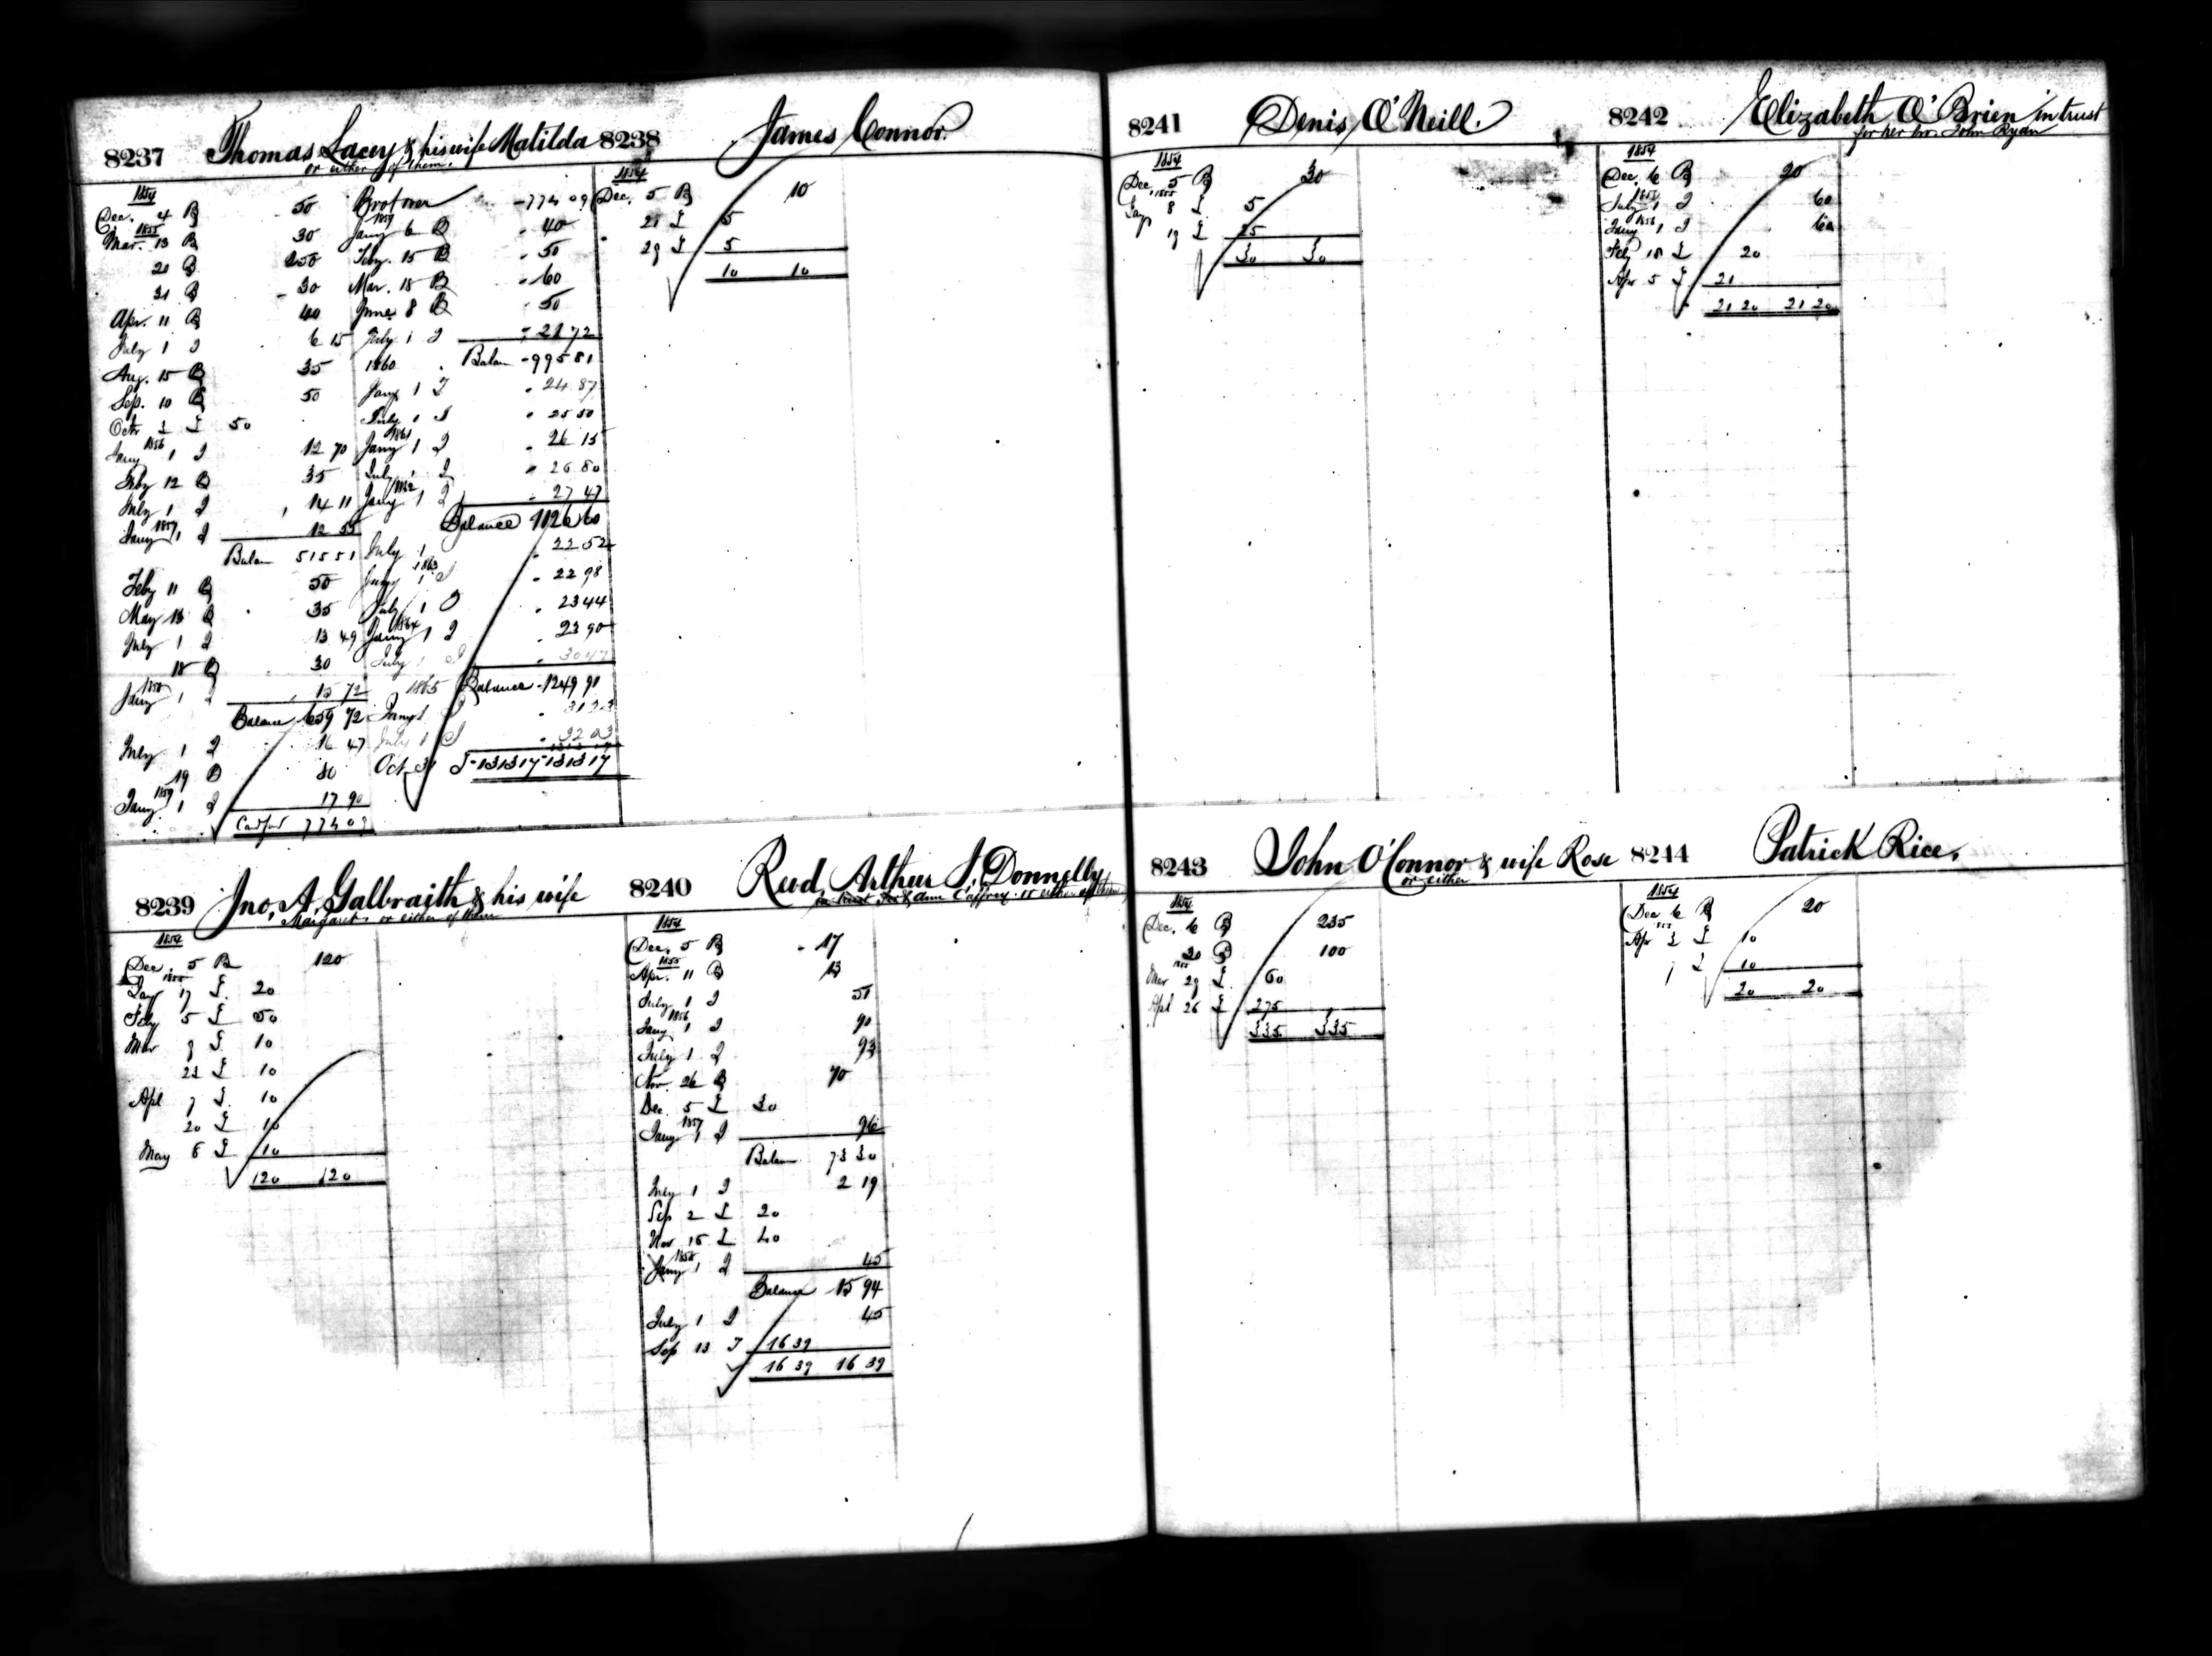 8237 Thomas Lacey & his wife Matilda
or either of them.
1854
Dec. 4 B 50
1855
Mar. 13 B 30
21 B 250
31 B 30
Apr. 11 B 40
July 1 I 6 15
Aug. 15 B 35
Sep. 10 B 50
Octr 50
1856
Jany 1 I 12 70
Feby 12 B 35
July 1 I 14 11
1857
Jany 1 I 12 55
Balan 515 51
Feby 11 B 50
May 13 B 35
July 1 I 13 49
18 B 30
1858
Jany 1 I 15 72
Balance 659 72
July 1 I 16 47
19 B 80
1859
Jany 1 I 17 90
Card ford 774 09
Brot over 774 09
1859
Jany 6 B 40
Feby. 15 B 50
Mar. 18 B 60
June 8 B 50
July 1 I 21 72
Balan 995 81
1860
Jany 1 I 24 87
July 1 I 25 50
1861
Jany 1 I 26 15
July 1 I 26 80
1862
Jany 1 I 27 47
Balance 1126 60
July 1 22 52
1863
Jany 1 I 22 98
July 1 I 23 44
1864
Jany 1 I 23 90
July 1 I 30 47
Balance 1249 91
1865
Jany 1 I 31 23
July 1 I 32 03
Oct 31 1313 17 1313 17
8238 James Connor.
1854
Dec. 5 B 10
21 £ 5
29 £ 5
10 10
8239 Jno. A. Galbraith & his wife
Margaret or either of them
1854
Dec. 5 B 120
1855
Jany 17 £ 20
Feby 5 £ 50
Mar 9 £ 10
23 £ 10
Apl 7 £ 10
20 £ 10
May 6 £ 10
120 120
8240 Revd. Arthur J. Donnelly
in trust for & Ann Caffrey or either of them
1854
Dec. 5 B 17
1855
Apr. 11 B 13
July 1 I 51
1856
Jany 1 I 90
July 1 I 93
Nov. 26 B 70
Dec. 5 £ 30
1857
Jany 1 I 96
Balan 73 30
July 1 I 2 19
Sep 2 £ 20
Nov 16 £ 40
1858
Jany 1 I 45
Balance 15 94
July 1 I 45
Sep 13 16 39
16 39 16 39
8241 Denis O'Neill.
1854
Dec. 5 B 30
1855
Jany 8 £ 5
19 £ 25
30 30
8242 Elizabeth O'Brien in trust
for her bro. John Ryan
1854
Dec. 6 B 20
1855
July 1 I 60
1856
Jany 1 I 60
Feby 18 £ 20
Apr 5 £ 21
21 20 21 20
8243 John O'Connor & wife Rose
or either
1854
Dec. 6 B 235
20 B 100
1855
Mar 29 £ 60
Apl 26 £ 275
335 335
8244 Patrick Rice.
1854
Dec 6 B 20
1855
Apr 3 £ 10
7 £ 10
20 20